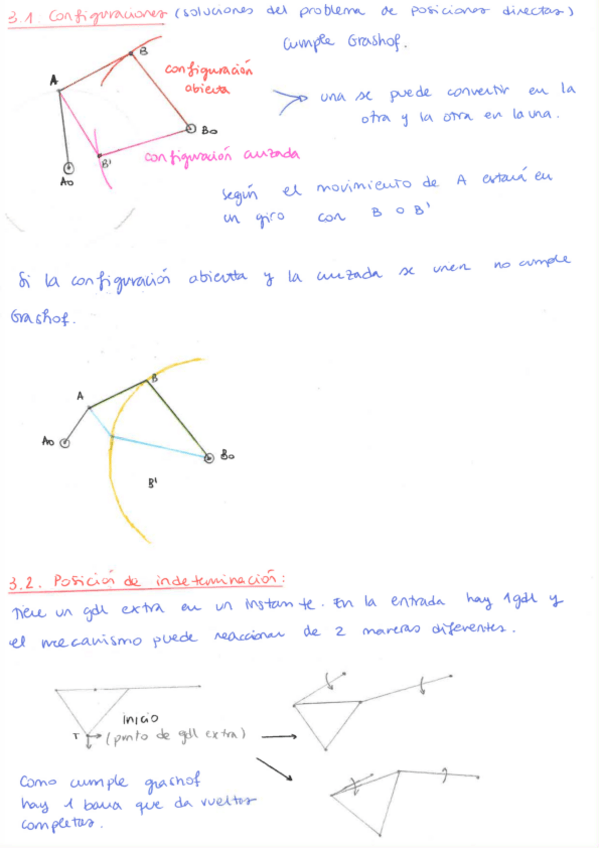 3.1. Configuraciones (soluciones del problema de posiciones directas)
Cumple Grashof.
B
A
configuración
abierta
una se puede convertir en la
otra y la otra en la una.
Bo
B'
configuración cruzada
Ao
según el movimiento de A estará en
un giro con B o B'
Si la configuración abierta y la cruzada se unen no cumple
Grashof.
B
A
Ao
Bo
B'
3.2. Posición de indeterminación:
Tiene un gdl extra en un instante. En la entrada hay 1gdl y
el mecanismo puede reaccionar de 2 maneras diferentes.
inicio
T (punto de gdl extra)
Como cumple grashof
hay 1 barra que da vueltas
completas.